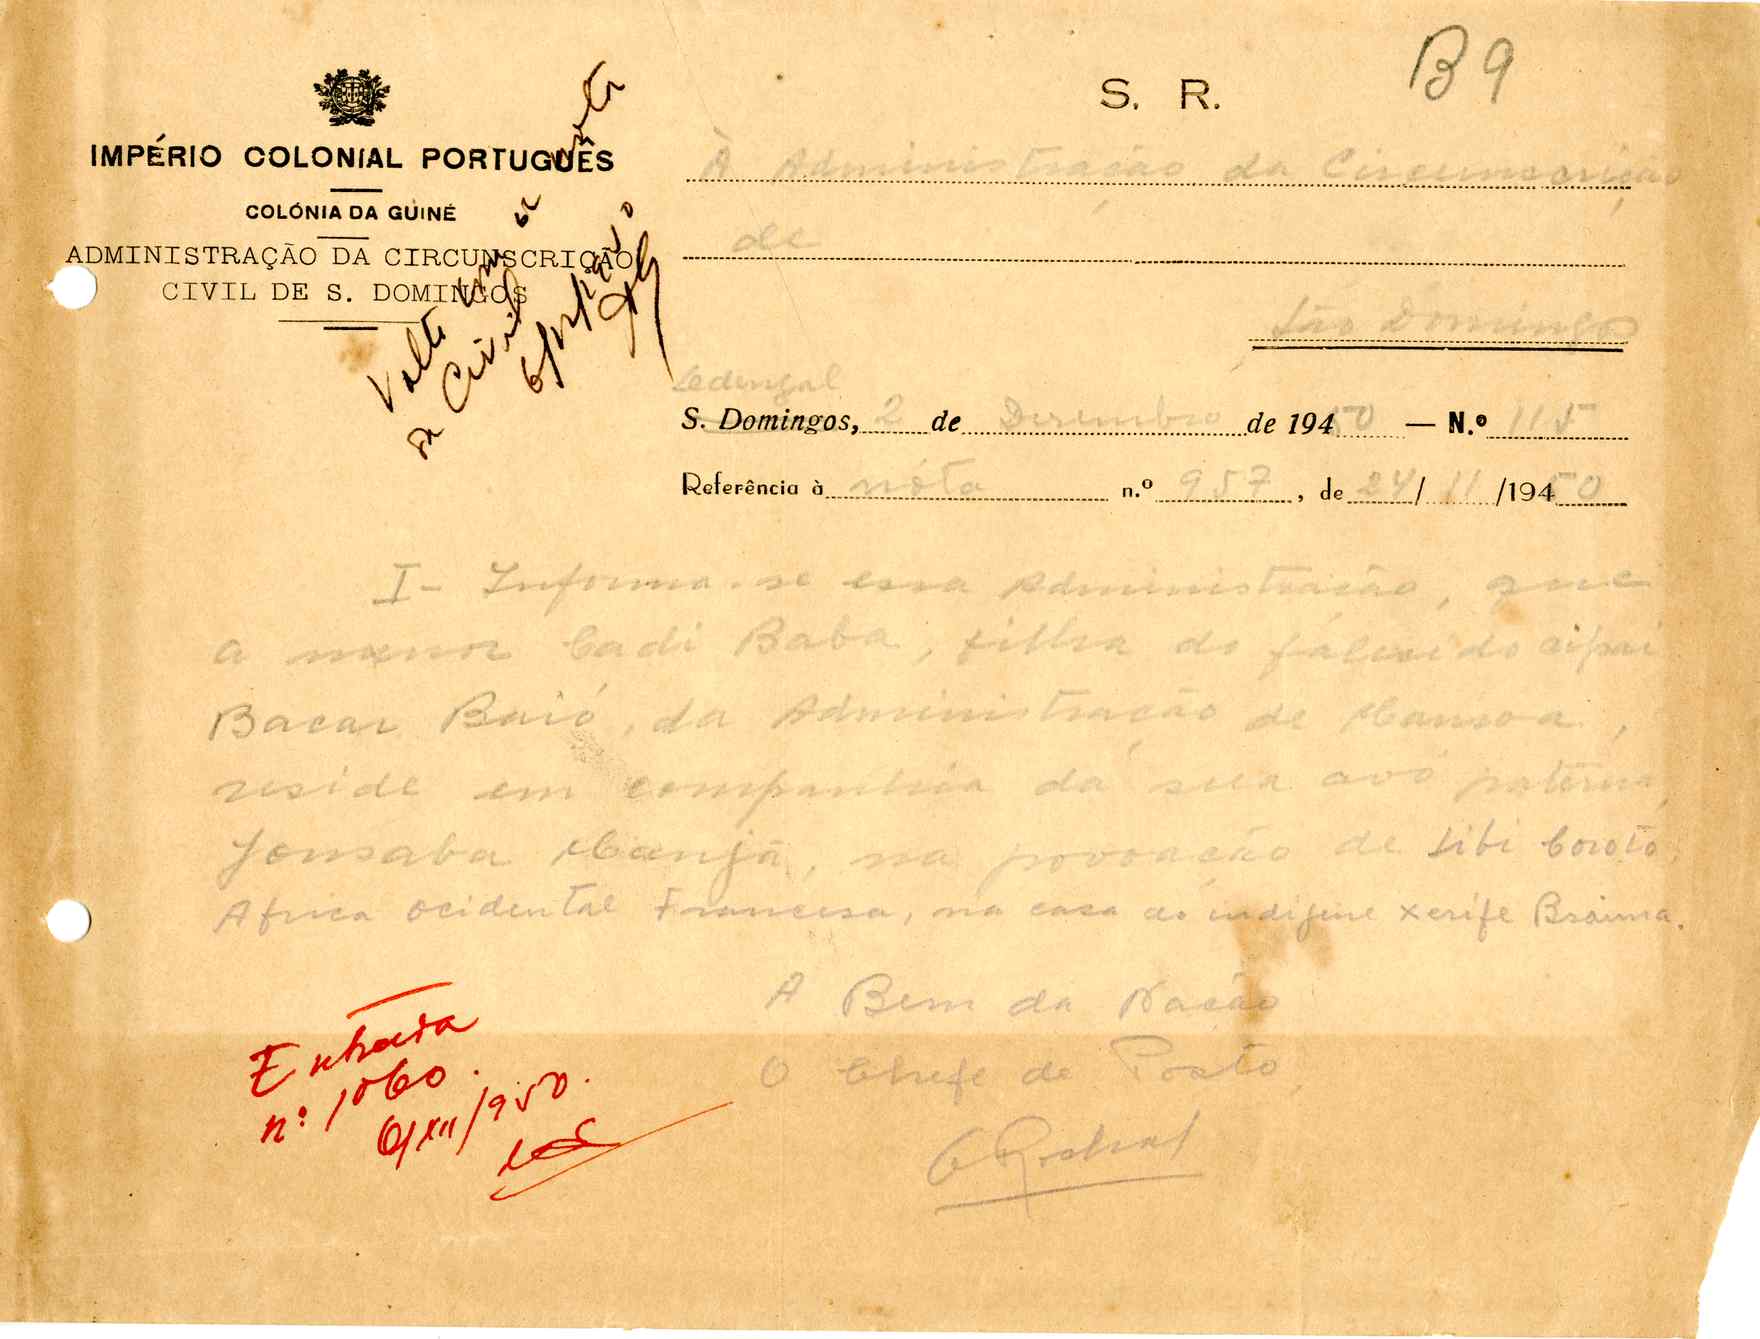 B9
S. R.
IMPÉRIO COLONIAL PORTUGUÊS
COLÓNIA DA GUINÉ
ADMINISTRAÇÃO DA CIRCUNSCRIÇÃO
CIVIL DE S. DOMINGOS
À Administração da Circunscrição
de
São Domingos
Sedengal
S. Domingos, 2 de Dezembro de 19450 — N.º 115
Referência à nóta n.º 957, de 24/11/19450
I- Informa-se essa Administração, que
a menor Cadi Baba, filha do falecido cipai
Bacar Baió, da Administração de Mansoa,
reside em companhia da sua avó paterna,
Jonsaba Manjã, na povoação de Sibi Coroto,
Africa Ocidental Francesa, na casa do indigene Xerife Braima.
A Bem da Nação
O Chefe de Posto,
Volte
Civil
Entrada
n.º 1060.
6/XII/950.